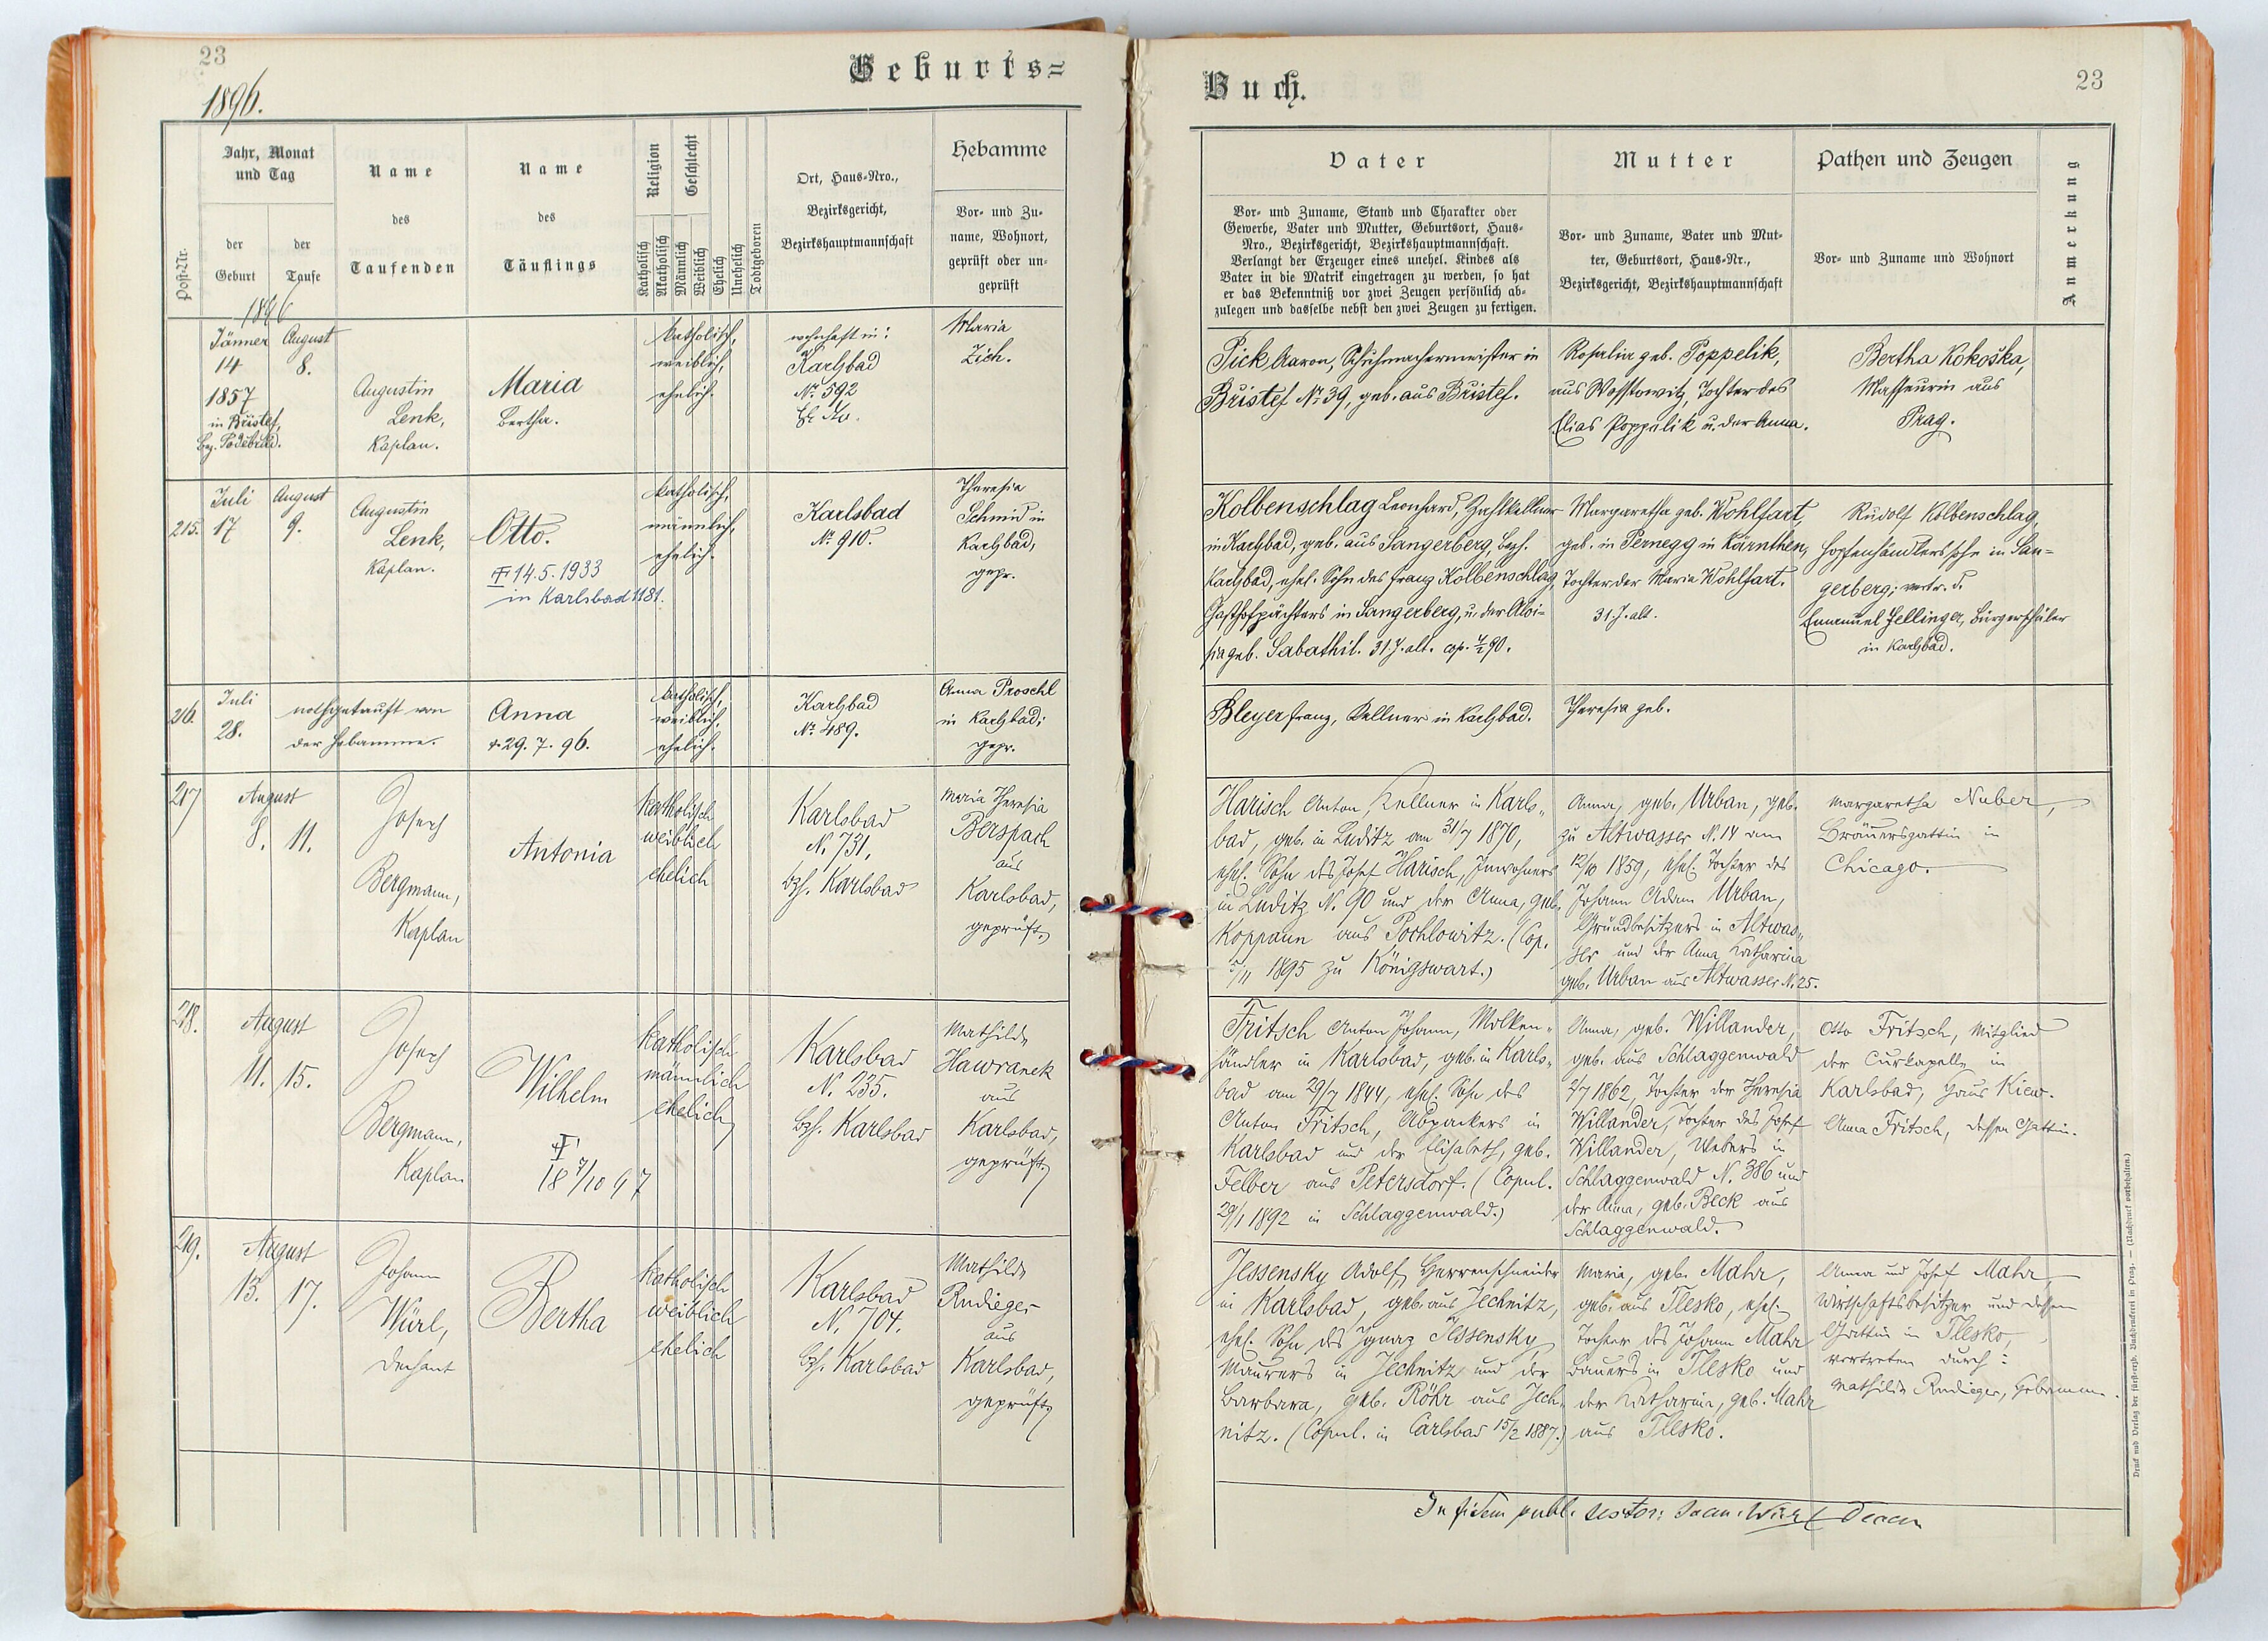 23
1896.
Geburts=
Jahr, Monat
und Tag
der
Geburt
der
Taufe
Post-Nr.
Name
des
Taufenden
Name
des
Täuflings
Religion
Geschlecht
Katholisch
Akatholisch
Männlich
Weiblich
Ehelich
Unehelich
Todtgeboren
Ort, Haus-Nro.,
Bezirksgericht,
Bezirkshauptmannschaft
Hebamme
Vor- und Zu-
name, Wohnort,
geprüft oder un-
geprüft
1896
Jänner
14
1857
in Bristef,
Bez. Poděbrad.
August
8.
Augustin
Lenk,
Kaplan.
Maria
Bertha.
katholisch,
weiblich,
ehelich.
wohnhaft in:
Karlsbad
Nr. 592
Maria
Zich.
215.
Juli
17
August
9.
Augustin
Lenk,
Kaplan.
Otto.
14.5.1933
in Karlsbad 1181.
katholisch,
männlich,
ehelich.
Karlsbad
Nr. 910.
Theresia
Schmid in
Karlsbad,
gepr.
216.
Juli
28.
nothgetauft von
der Hebamme.
Anna
+ 29. 7. 96.
katholisch,
weiblich,
ehelich.
Karlsbad
Nr. 489.
Anna Proschl
in Karlsbad;
gepr.
217
August
8. 11.
Joseph
Bergmann,
Kaplan
Antonia
katholisch
weiblich
ehelich
Karlsbad
N. 731,
bzh. Karlsbad
Maria Theresia
Berspach
aus
Karlsbad,
geprüft
218.
August
11. 15.
Joseph
Bergmann,
Kaplan
Wilhelm
18 7/10 97
katholisch
männlich
ehelich
Karlsbad
N. 235.
bzh. Karlsbad
Mathilde
Hawranek
aus
Karlsbad,
geprüft
219.
August
13. 17.
Johann
Würl,
Dechant
Bertha
katholisch
weiblich
ehelich
Karlsbad
N. 704.
bzh. Karlsbad
Mathilde
Rudieger
aus
Karlsbad,
geprüft
Buch.
23
Vater
Vor- und Zuname, Stand und Charakter oder
Gewerbe, Vater und Mutter, Geburtsort, Haus-
Nro., Bezirksgericht, Bezirkshauptmannschaft.
Verlangt der Erzeuger eines unehel. Kindes als
Vater in die Matrik eingetragen zu werden, so hat
er das Bekenntniß vor zwei Zeugen persönlich ab-
zulegen und dasselbe nebst den zwei Zeugen zu fertigen.
Mutter
Vor- und Zuname, Vater und Mut-
ter, Geburtsort, Haus-Nr.,
Bezirksgericht, Bezirkshauptmannschaft
Pathen und Zeugen
Vor- und Zuname und Wohnort
Anmerkung
Pick Aaron, Schuhmachermeister in
Bristef Nr. 39, geb. aus Bristef.
Rosalia geb. Poppelik,
aus Woßtowitz, Tochter des
Elias Poppelik u. der Anna.
Bertha Kokoška,
Masseurin aus
Prag.
Kolbenschlag Leonhard, Zahlkellner
in Karlsbad, geb. aus Sangerberg, Bezh.
Karlsbad, ehel. Sohn des Franz Kolbenschlag,
Gasthofpächters in Sangerberg, u. der Aloi-
sia geb. Sabathil. 31 J. alt. cop. 90.
Margaretha geb. Wohlfart,
geb. in Pernegg in Kärnthen,
Tochter der Maria Wohlfart.
31. J. alt.
Rudolf Kolbenschlag,
Hopfenhändlerssohn in San-
gerberg; vertr. d.
Emanuel Zellinger, Bürgerschüler
in Karlsbad.
Bleyer Franz, Kellner in Karlsbad.
Theresia geb.
Harisch Anton, Kellner in Karls-
bad, geb. in Luditz am 31/7 1870,
ehel. Sohn des Josef Harisch, Inwohners
in Luditz N. 90 und der Anna, geb.
Koppann aus Pochlowitz. (Cop.
5/11 1895 zu Königswart.)
Anna, geb. Urban, geb.
zu Altwasser N. 14 am
12/10 1859, ehel. Tochter des
Johann Adam Urban,
Grundbesitzers in Altwas-
ser und der Anna Katharina
geb. Urban aus Altwasser N. 25.
Margaretha Nuber,
Bräuersgattin in
Chicago.
Fritsch Anton Johann, Molken-
händler in Karlsbad, geb. in Karls-
bad am 29/7 1844, ehel. Sohn des
Anton Fritsch, Abpackers in
Karlsbad und der Elisabeth, geb.
Felber aus Petersdorf. (Copul.
29/1 1892 in Schlaggenwald.)
Anna, geb. Willander,
geb. aus Schlaggenwald
2/7 1862, Tochter der Theresia
Willander, Tochter des Josef
Willander, Webers in
Schlaggenwald N. 386 und
der Anna, geb. Beck aus
Schlaggenwald.
Otto Fritsch, Mitglied
der Curkapelle in
Karlsbad, Haus Kiew.
Anna Fritsch, dessen Gattin.
Jessensky Adolf, Herrenschneider
in Karlsbad, geb. aus Jechnitz,
ehel. Sohn des Ignaz Jessensky
Maurers in Jechnitz und der
Barbara, geb. Röhr aus Jech-
nitz. (Copul. in Carlsbad 15/2 1887.)
Maria, geb. Mahr,
geb. aus Tlesko, ehel.
Tochter des Johann Mahr
Bauers in Tlesko und
der Katharina, geb. Mahr
aus Tlesko.
Anna und Josef Mahr,
Wirtschaftsbesitzer und dessen
Gattin in Tlesko,
vertreten durch:
Mathilde Rudieger, Hebamme.
In fidem publ. testor: Joan. Würl Decan
Druck und Verlag der fürsterzb. Buchdruckerei in Prag. — (Nachdruck vorbehalten.)